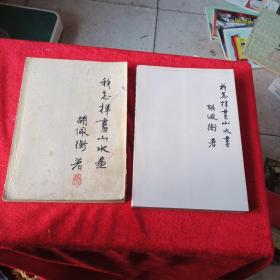 我怎样画山水画
胡佩衡著
我怎样画山水画
胡佩衡著